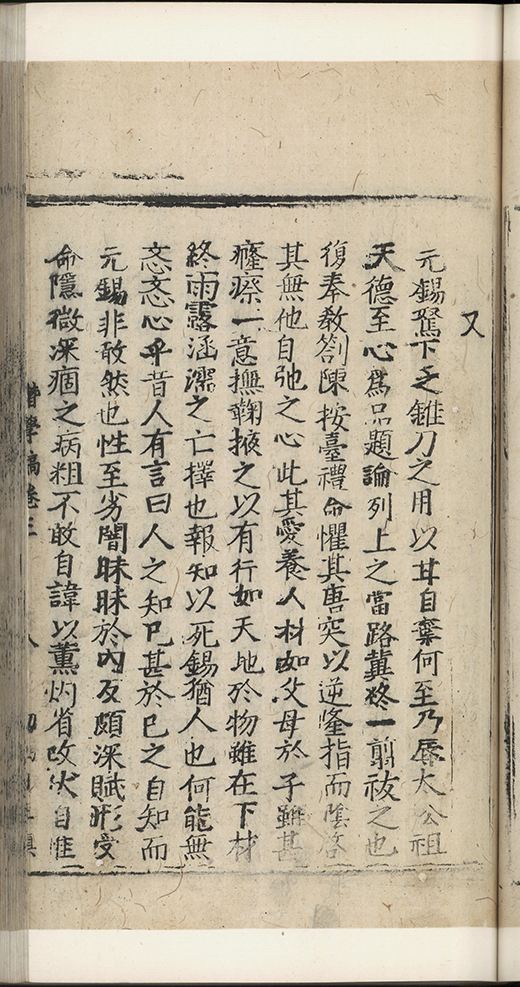 又
元錫駑下乏錐刀之用以甘自棄何至乃辱大公祖
天德至心爲品題論列上之當路冀終一翦祓之也
復奉教劄陳按臺禮命懼其唐突以逆隆指而陰啓
其無他自弛之心此其愛養人材如父母於子雖甚
癃瘵一意撫鞠掖之以有行如天地於物雖在下材
終雨露涵濡之亡擇也報知以死錫猶人也何能無
忞忞心乎昔人有言曰人之知己甚於己之自知而
元錫非敢然也性至劣闇昧昧於內反頗深賦形受
命隱微深痼之病粗不敢自諱以薰灼省改伏自惟
潛學稿卷三 八